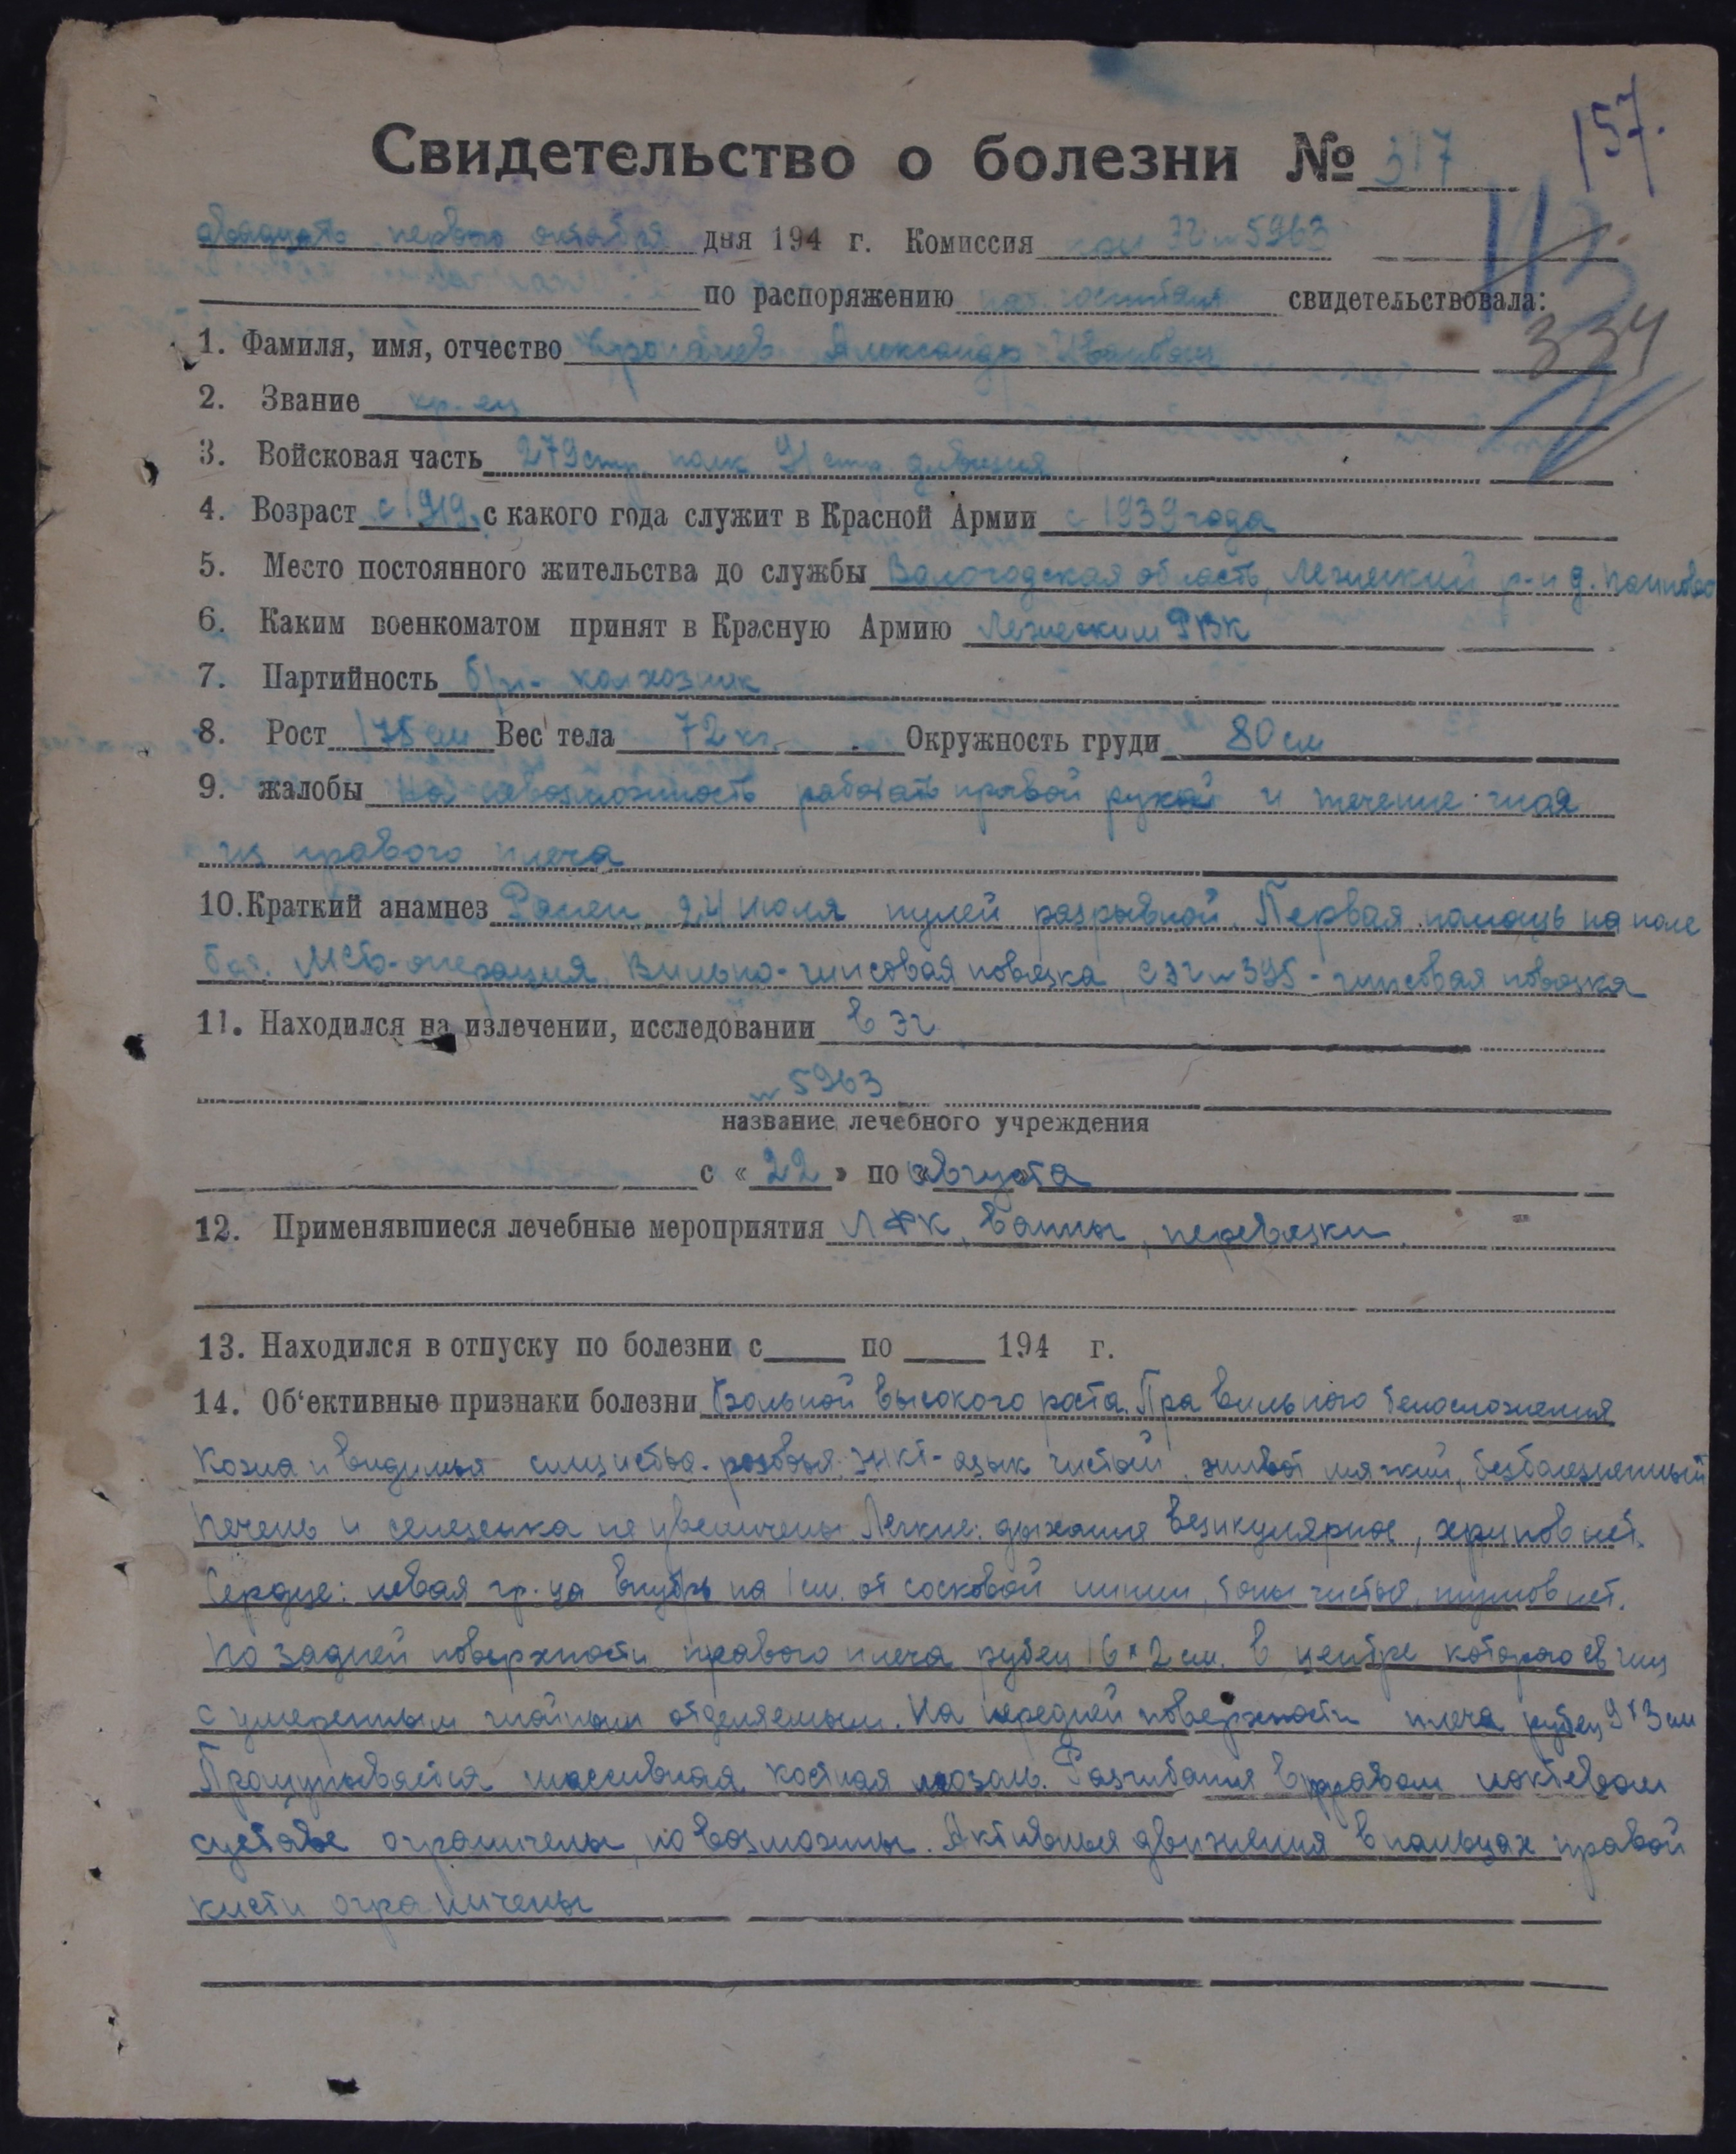 157.
Свидетельство о болезни № 317
двадцать первого октября дня 194 г. Комиссия при ЭГ № 5963
113
по распоряжению нач. госпиталя свидетельствовала:
334
1. Фамиля, имя, отчество Александр Иванович
2. Звание кр-ец
3. Войсковая часть 279 стр. полк 91 стр. дивизия
4. Возраст с 1919 с какого года служит в Красной Армии с 1939 года
5. Место постоянного жительства до службы Вологодская область, р-н д.
6. Каким военкоматом принят в Красную Армию РВК
7. Партийность б/п - колхозник
8. Рост 175 см Вес тела 72 кг. Окружность груди 80 см
9. жалобы На невозможность работать правой рукой и течение гноя
из правого плеча
10. Краткий анамнез Ранен 24 июля пулей разрывной. Первая помощь на поле
боя. МСБ-операция, Вильно-гипсовая повязка, СЭГ № 395 - гипсовая повязка
11. Находился на излечении, исследовании в ЭГ
№ 5963
название лечебного учреждения
с « 22 » по августа
12. Применявшиеся лечебные мероприятия ЛФК, Ванны, перевязки.
13. Находился в отпуску по болезни с по 194 г.
14. Об'ективные признаки болезни Больной высокого роста. Правильного телосложения
Кожа и видимыя слизистые - розовыя. ЖКТ - язык чистый, живот мягкий, безболезненный
Печень и селезенка не увеличены. Легкие: дыхание везикулярное, хрипов нет.
Сердце: левая гр-ца внутрь на 1 см. от сосковой линии, тоны чистые, шумов нет.
По задней поверхности правого плеча рубец 16 х 2 см. в центре которого свищ
с умеренным гнойным отделяемым. На передней поверхности плеча рубец 9 х 3 см
Прощупывается массивная костная мозоль. Разгибания в правом локтевом
суставе ограничены, но возможны. Активныя движения в пальцах правой
кисти ограничены